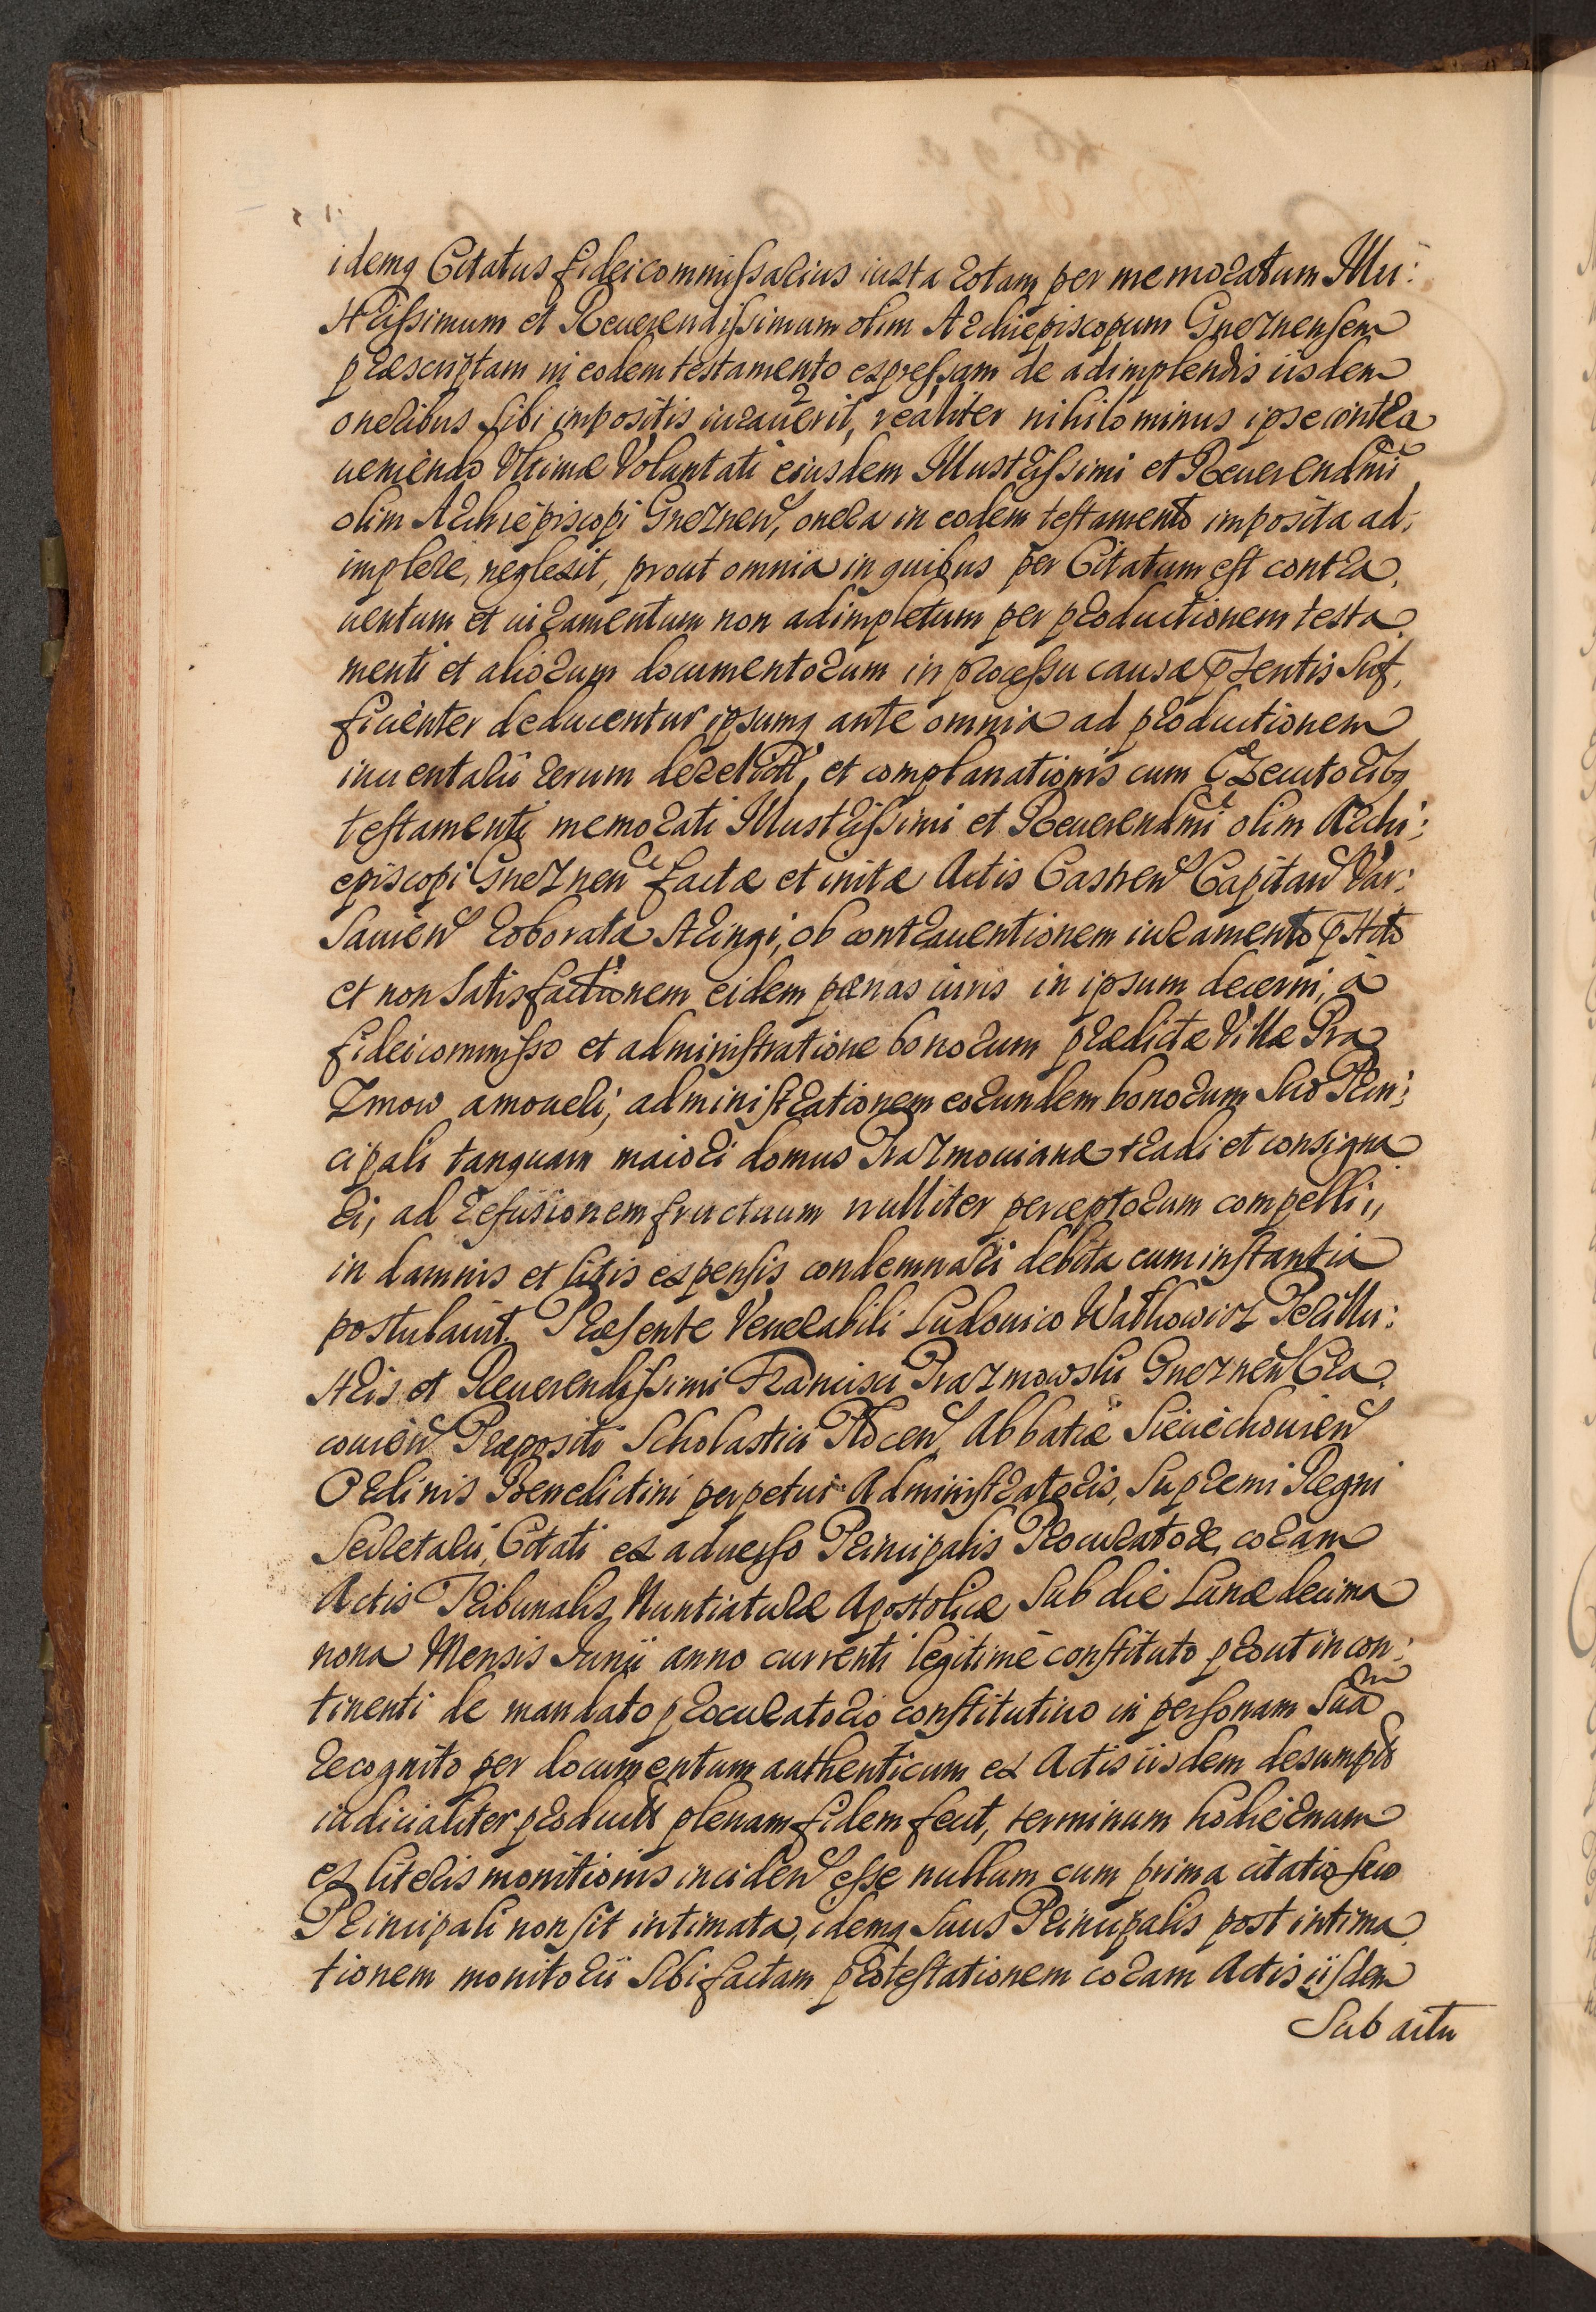 idemq Citatus fideicommissarius iuxta rotam per memoratum Illu:
strissimum et Reuerendissimum olim Archiepiscopum Gneznensem
præscriptam in eodem testamento expressam de adimplendis iisdem
oneribus sibi impositis iurauerit, realiter nihilominus ipse contra
ueniendo Vltimæ Voluntati eiusdem Illustrissimi et Reuerendmi
olim Archiepiscopi Gneznen, onera in eodem testamento imposita ad:
implere, neglexit, prout omnia in quibus per Citatum est contra
uentum et iuramentum non adimpletum per productionem testa
menti et aliorum documentorum in processu causæ pntis suf,
ficienter deducentur ipsumq ante omnia ad productionem
inuentarii rerum derelict, et complanationis cum Executoribq
testamenti memorati Illustrissimi et Reuerendmi olim Archi:
episcopi Gneznen factæ et initæ Actis Castren Capitan Var:
sauien roborata stringi, ob contrauentionem iuramento pstito
et non satisfactionem eidem pœnas iuris in ipsum decerni, à
fideicommisso et administratione bonorum prædictæ Villæ Pra
zmow amoueri, administrationem eorundem bonorum suo Prin:
cipali tanquam maiori domus Prazmouianæ tradi et consigna
ri, ad refusionem fructuum nulliter perceptorum compelli,
in damnis et litis expensis condemnari debita cum instantia
postulauit. Præsente Venerabili Ludouico Wathowicz Perillu:
stris et Reuerendissimi Francisci Prazmowski Gneznen Cra
couien Præpositi Scholastici Plocen, Abbatiæ Sieciechouien
Ordinis Benedictini perpetui Administratoris, Supremi Regni
Secretarii, Citati ex aduerso Principalis Procuratore, coram
Actis Tribunalis Nuntiaturæ Apostolicæ sub die Lunæ decima
nona Mensis Junii anno currenti legitimè constituto prout in con:
tinenti de mandato procuratorio constitutiuo in personam suam
recognito per documentum authenticum ex Actis iisdem desumpto
iudicialiter producto plenam fidem fecit, terminum hodiernum
ex literis monitionis inciden esse nullum cum prima citatio suo
Principali non sit intimata, idemq suus Principalis post intima
tionem monitorii sibi factam protestationem coram Actis iisdem
Sub actu